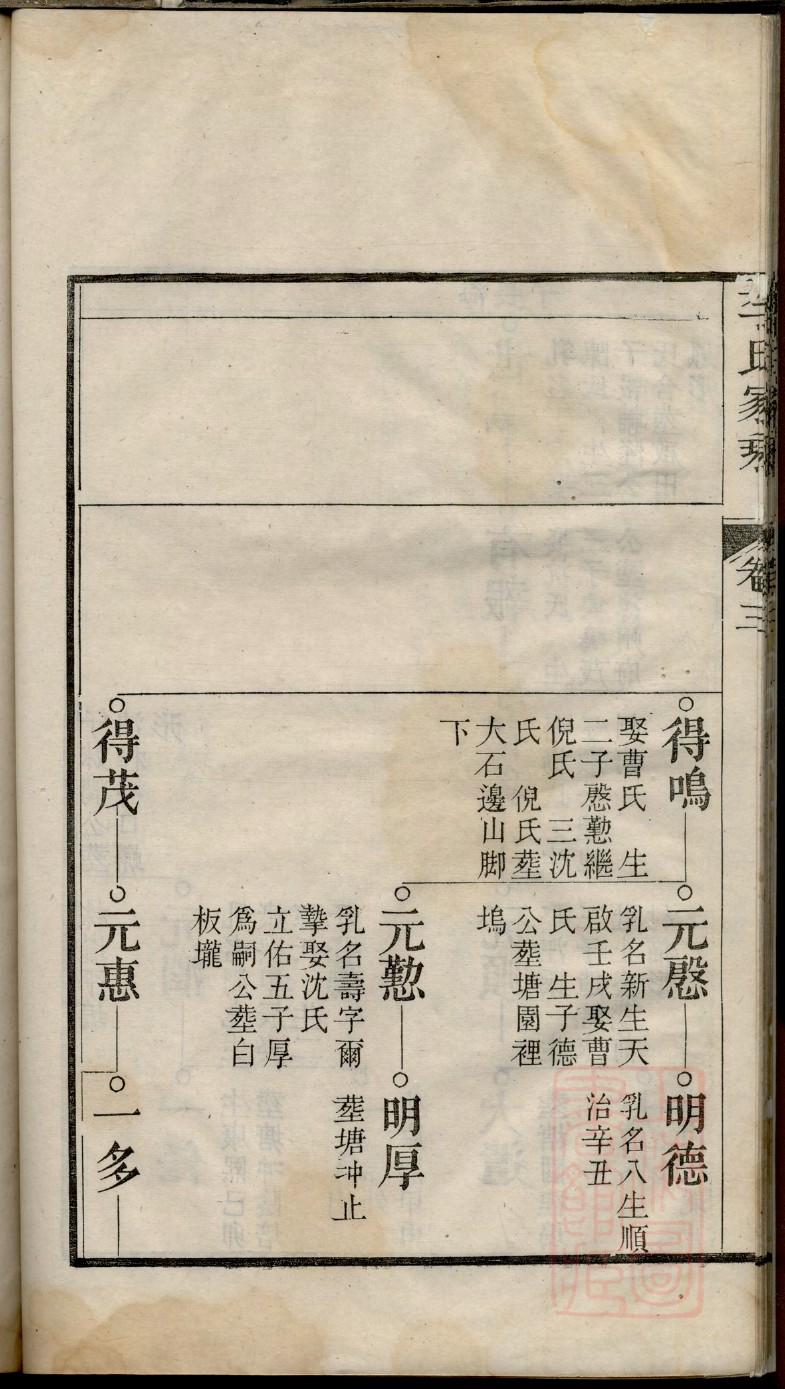 氏家
卷三
得鳴
娶曹氏 生
二子慇懃繼
倪氏 三沈
氏 倪氏塟
大石邊山脚
下
元慇
乳名新生天
啟壬戌娶曹
氏 生子德
公塟塘園裡
塢
明德
乳名八生順
治辛丑
元懃
乳名壽字爾
摯娶沈氏
立佑五子厚
爲嗣公塟白
板壠
明厚
塟塘冲止
得茂
元惠
一多